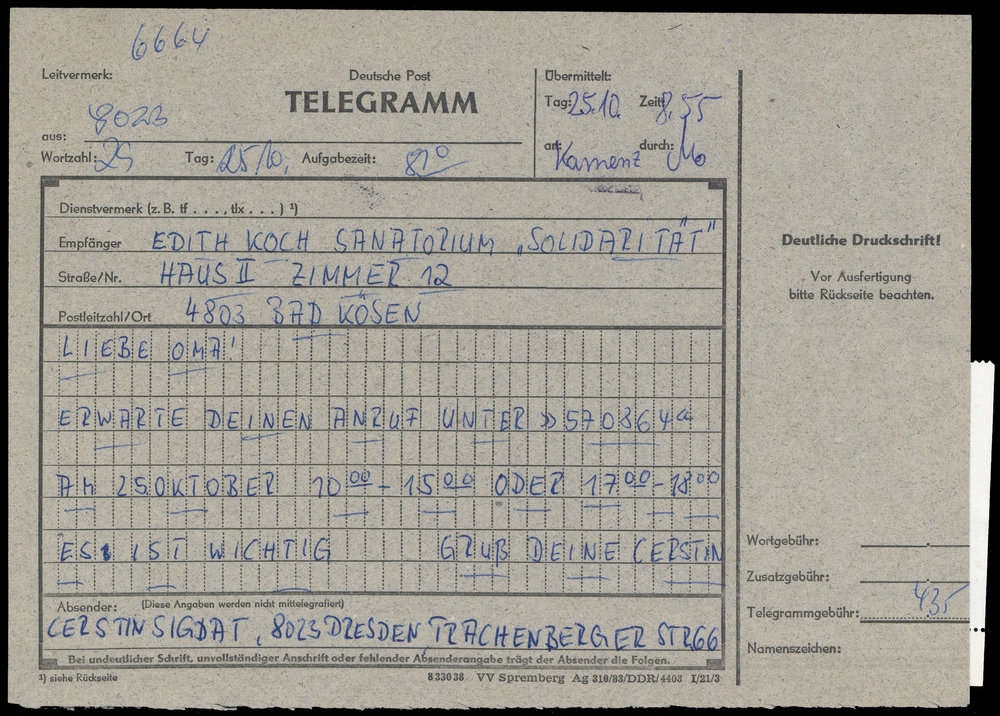 6664
Leitvermerk:
Deutsche Post
TELEGRAMM
8023
aus:
Wortzahl: 29 Tag: 25/10. Aufgabezeit: 8 20
Übermittelt:
Tag: 25.10. Zeit: 8.55
an: Kamenz durch: Mo
Dienstvermerk (z. B. tf . . . ., tlx . . . ) ¹)
Empfänger EDITH KOCH SANATORIUM „SOLIDARITÄT"
Straße/Nr. HAUS II ZIMMER 12
Postleitzahl/Ort 4803 BAD KÖSEN
LIEBE OMA!
ERWARTE DEINEN ANRUF UNTER »570364"
AM 25OKTOBER 10 00 - 15 00 ODER 17 00 - 18 00
ES IST WICHTIG GRUß DEINE CERSTIN
Absender: (Diese Angaben werden nicht mittelegrafiert)
CERSTIN SIGDAT, 8023 DRESDEN, TRACHENBERGER STR66
Bei undeutlicher Schrift, unvollständiger Anschrift oder fehlender Absenderangabe trägt der Absender die Folgen.
¹) siehe Rückseite
833038 VV Spremberg Ag 310/83/DDR/4403 I/21/3
Deutliche Druckschrift!
Vor Ausfertigung
bitte Rückseite beachten.
Wortgebühr:
Zusatzgebühr:
Telegrammgebühr: 435
Namenszeichen: